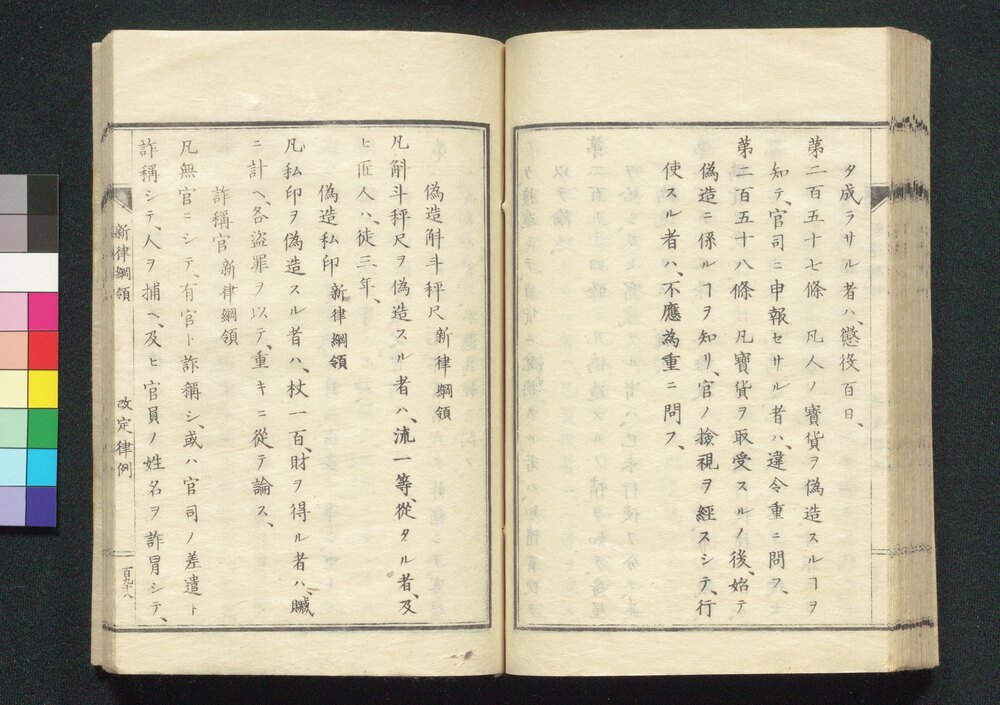 タ成ラサル者ハ、懲役百日、
第二百五十七條　凡人ノ寳貨ヲ偽造スルヿヲ
知テ、官司ニ申報セサル者ハ、違令重ニ問フ、
第二百五十八條　凡寳貨ヲ取受スルノ後、始テ
偽造ニ係ルヿヲ知リ、官ノ撿視ヲ經スシテ、行
使スル者ハ、不應為重ニ問フ、
偽造斛斗秤尺 新律綱領
凡斛斗秤尺ヲ偽造スル者ハ、流一等、從タル者、及
ヒ匠人ハ、徒三年、
偽造私印 新律綱領
凡私印ヲ偽造スル者ハ、杖一百、財ヲ得ル者ハ、贓
ニ計ヘ、各盗罪ヲ以テ、重キニ從テ論ス、
詐稱官 新律綱領
凡無官ニシテ、有官ト詐稱シ、或ハ官司ノ差遣ト
詐稱シテ、人ヲ捕ヘ、及ヒ官員ノ姓名ヲ詐冒シテ、
新律綱領　改定律例　百九十八